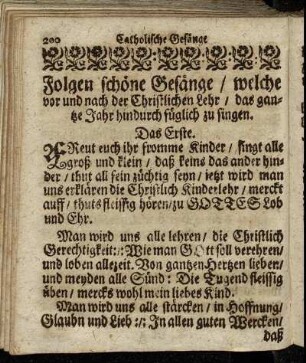 200 Catholische Gesänge
Folgen schöne Gesänge / welche
vor und nach der Christlichen Lehr / das gan-
tze Jahr hindurch füglich zu singen.
Das Erste.
FReut euch ihr fromme Kinder / singt alle
groß und klein / daß keins das ander hin-
der / thut all fein züchtig seyn / jetzt wird man
uns erklären die Christlich Kinderlehr / merckt
auff / thuts fleissig hören / zu GOTTES Lob
und Ehr.
Man wird uns alle lehren / die Christlich
Gerechtigkeit :/: Wie man GOtt soll verehren /
und loben allezeit. Von gantzen Hertzen lieben /
und meyden alle Sünd : Die Tugend fleissig
üben / mercks wohl mein liebes Kind.
Man wird uns alle stärcken / in Hoffnung /
Glaubn und Lieb :/: In allen guten Wercken /
daß